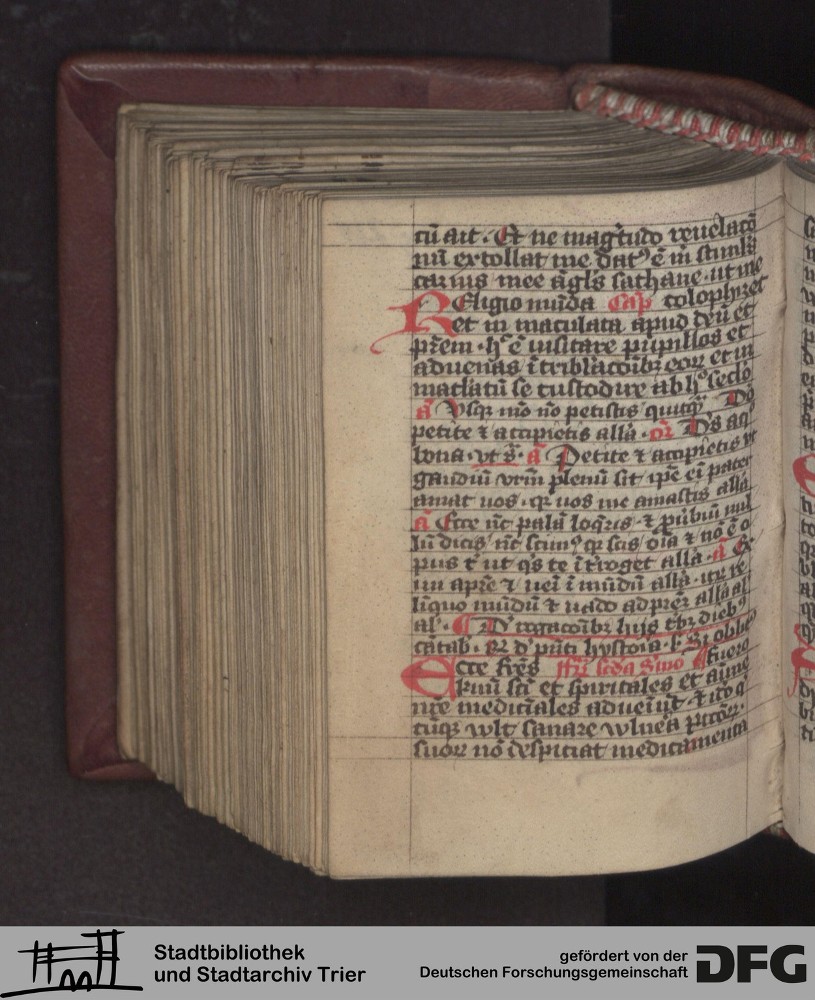 tū ait. Et ne magr̄tudo reuelacō
nū extollat me dat⁹ ē m̄ stimlꝰ
carnis mee āgl̄s sathane ut me
Religio mūda Cap̄ colophizet
et in maculata apud deū et
pr̄em hͦ ē uisitare pupillos et
aduenas ī tribl̄acōibꝫ eoꝝ et in
maclatū se custodire ab hͦ sēclo
ā Vsqꝫ mō nō petistis
petite ⁊ accipietis all̄a. or̄ Ds̄ a q̊
bona. vt s̄. ā Petite ⁊ accipietis vt
gaudiū vrm̄ plenū sit ip̄e eī pater
amat uos. qꝛ uos me amastis all̄a
ā Ecce nc̄ palā loq̄ris ⁊ ꝓubiū nul
lū dicis nc̄ scim⁹ qꝛ scis oīa ⁊ nō ē o
pus t̄ ut q̊s te īt̄roget all̄a. ā Ex
iui a pr̄e ⁊ ueī ī mūdū all̄a. itꝝ re
linquo mūdū ⁊ uado ad pr̄eꝫ all̄a al
al̄. D̄ rogacōibꝫ huiꝰ
cātab. hystoīa. Si
Ecce fr̄es fr̄ sc̄da Smo fuerū
kmū sc̄i et spiritales et aīme
nr̄e mediciales adueniūt. ⁊ iō q̊
cūqꝫ wlt sanare wln̄ea pctōꝝ
suoꝝ nō despiciat medicamenta
Stadtbibliothek
und Stadtarchiv Trier
gefördert von der
Deutschen Forschungsgemeinschaft DFG